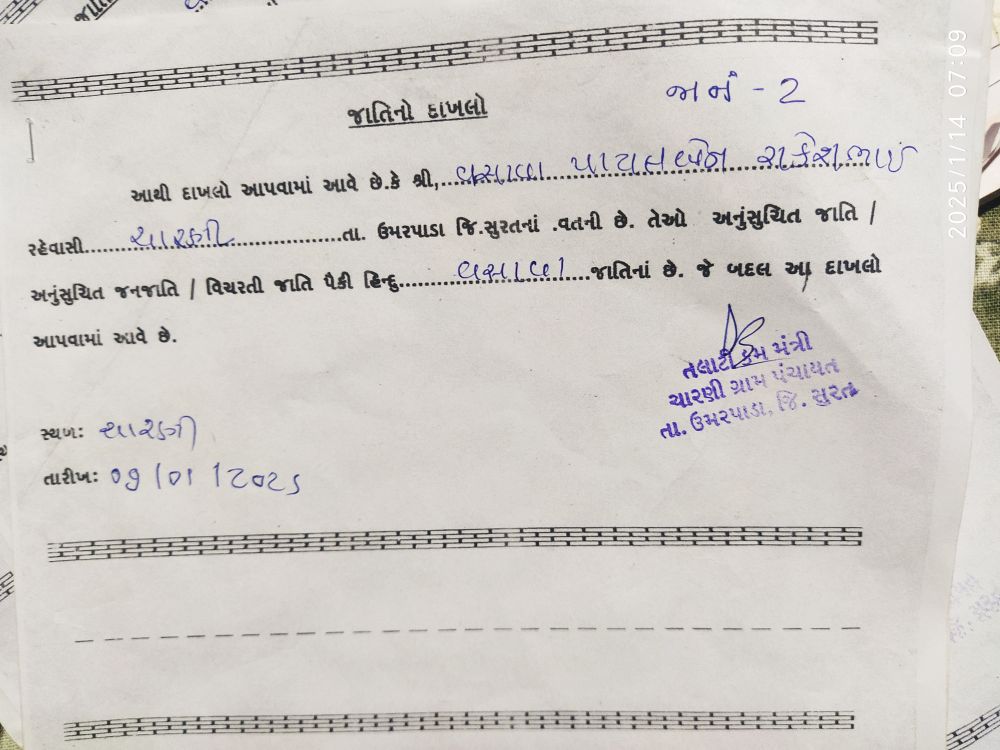 જા નં - 2
જાતિનો દાખલો
આથી દાખલો આપવામાં આવે છે.કે શ્રી,..વસાવા પાયલબેન રાકેશભાઈ
રહેવાસી....ચારણી....તા. ઉમરપાડા જિ.સુરતનાં .વતની છે. તેઓ અનુંસુચિત જાતિ /
અનુંસુચિત જનજાતિ / વિચરતી જાતિ પૈકી હિન્દુ....વસાવા....જાતિનાં છે. જે બદલ આ દાખલો
આપવામાં આવે છે.
તલાટી કમ મંત્રી
ચારણી ગ્રામ પંચાયત
તા. ઉમરપાડા, જિ. સુરત
સ્થળ: ચારણી
તારીખ: 09/01/2025
2025/1/14 07:09